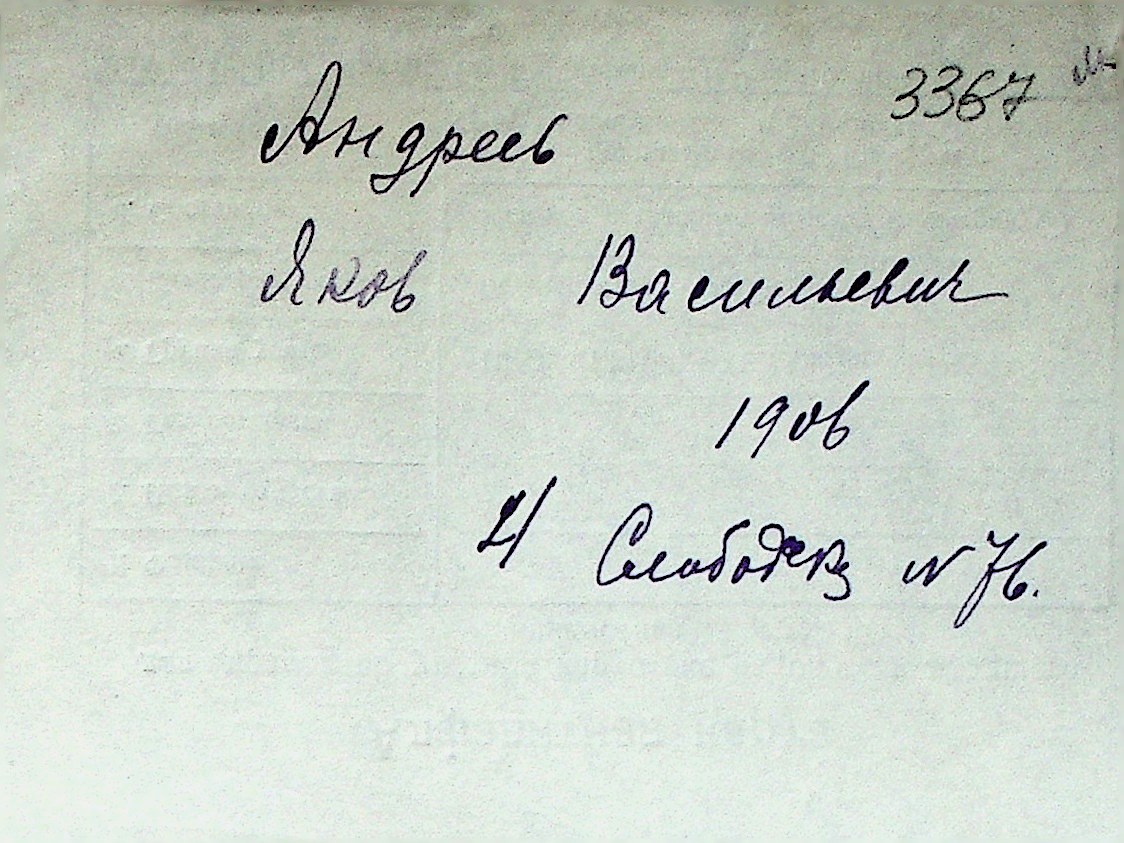 3367
Андреев
Яков Васильевич
1906
21 Слободска N 76.